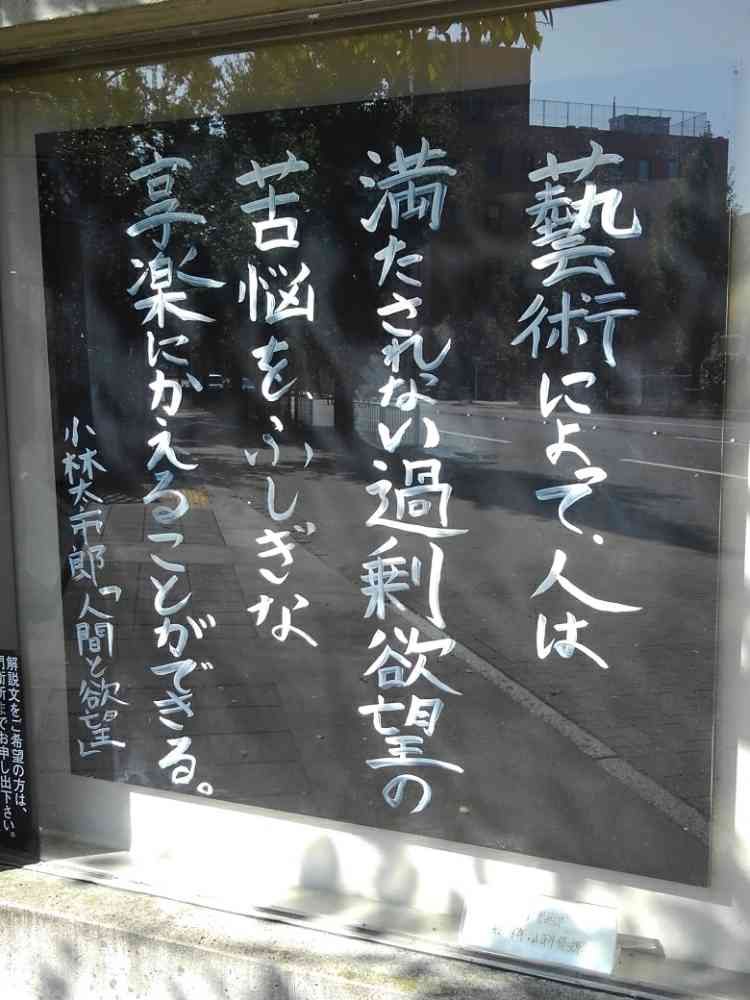 藝術によって、人は
満たされない過剰欲望の
苦悩を、ふしぎな
享楽にかえることができる。
小林太市郎「人間と欲望」
解説文をご希望の方は、
門衛所までお申し出下さい。